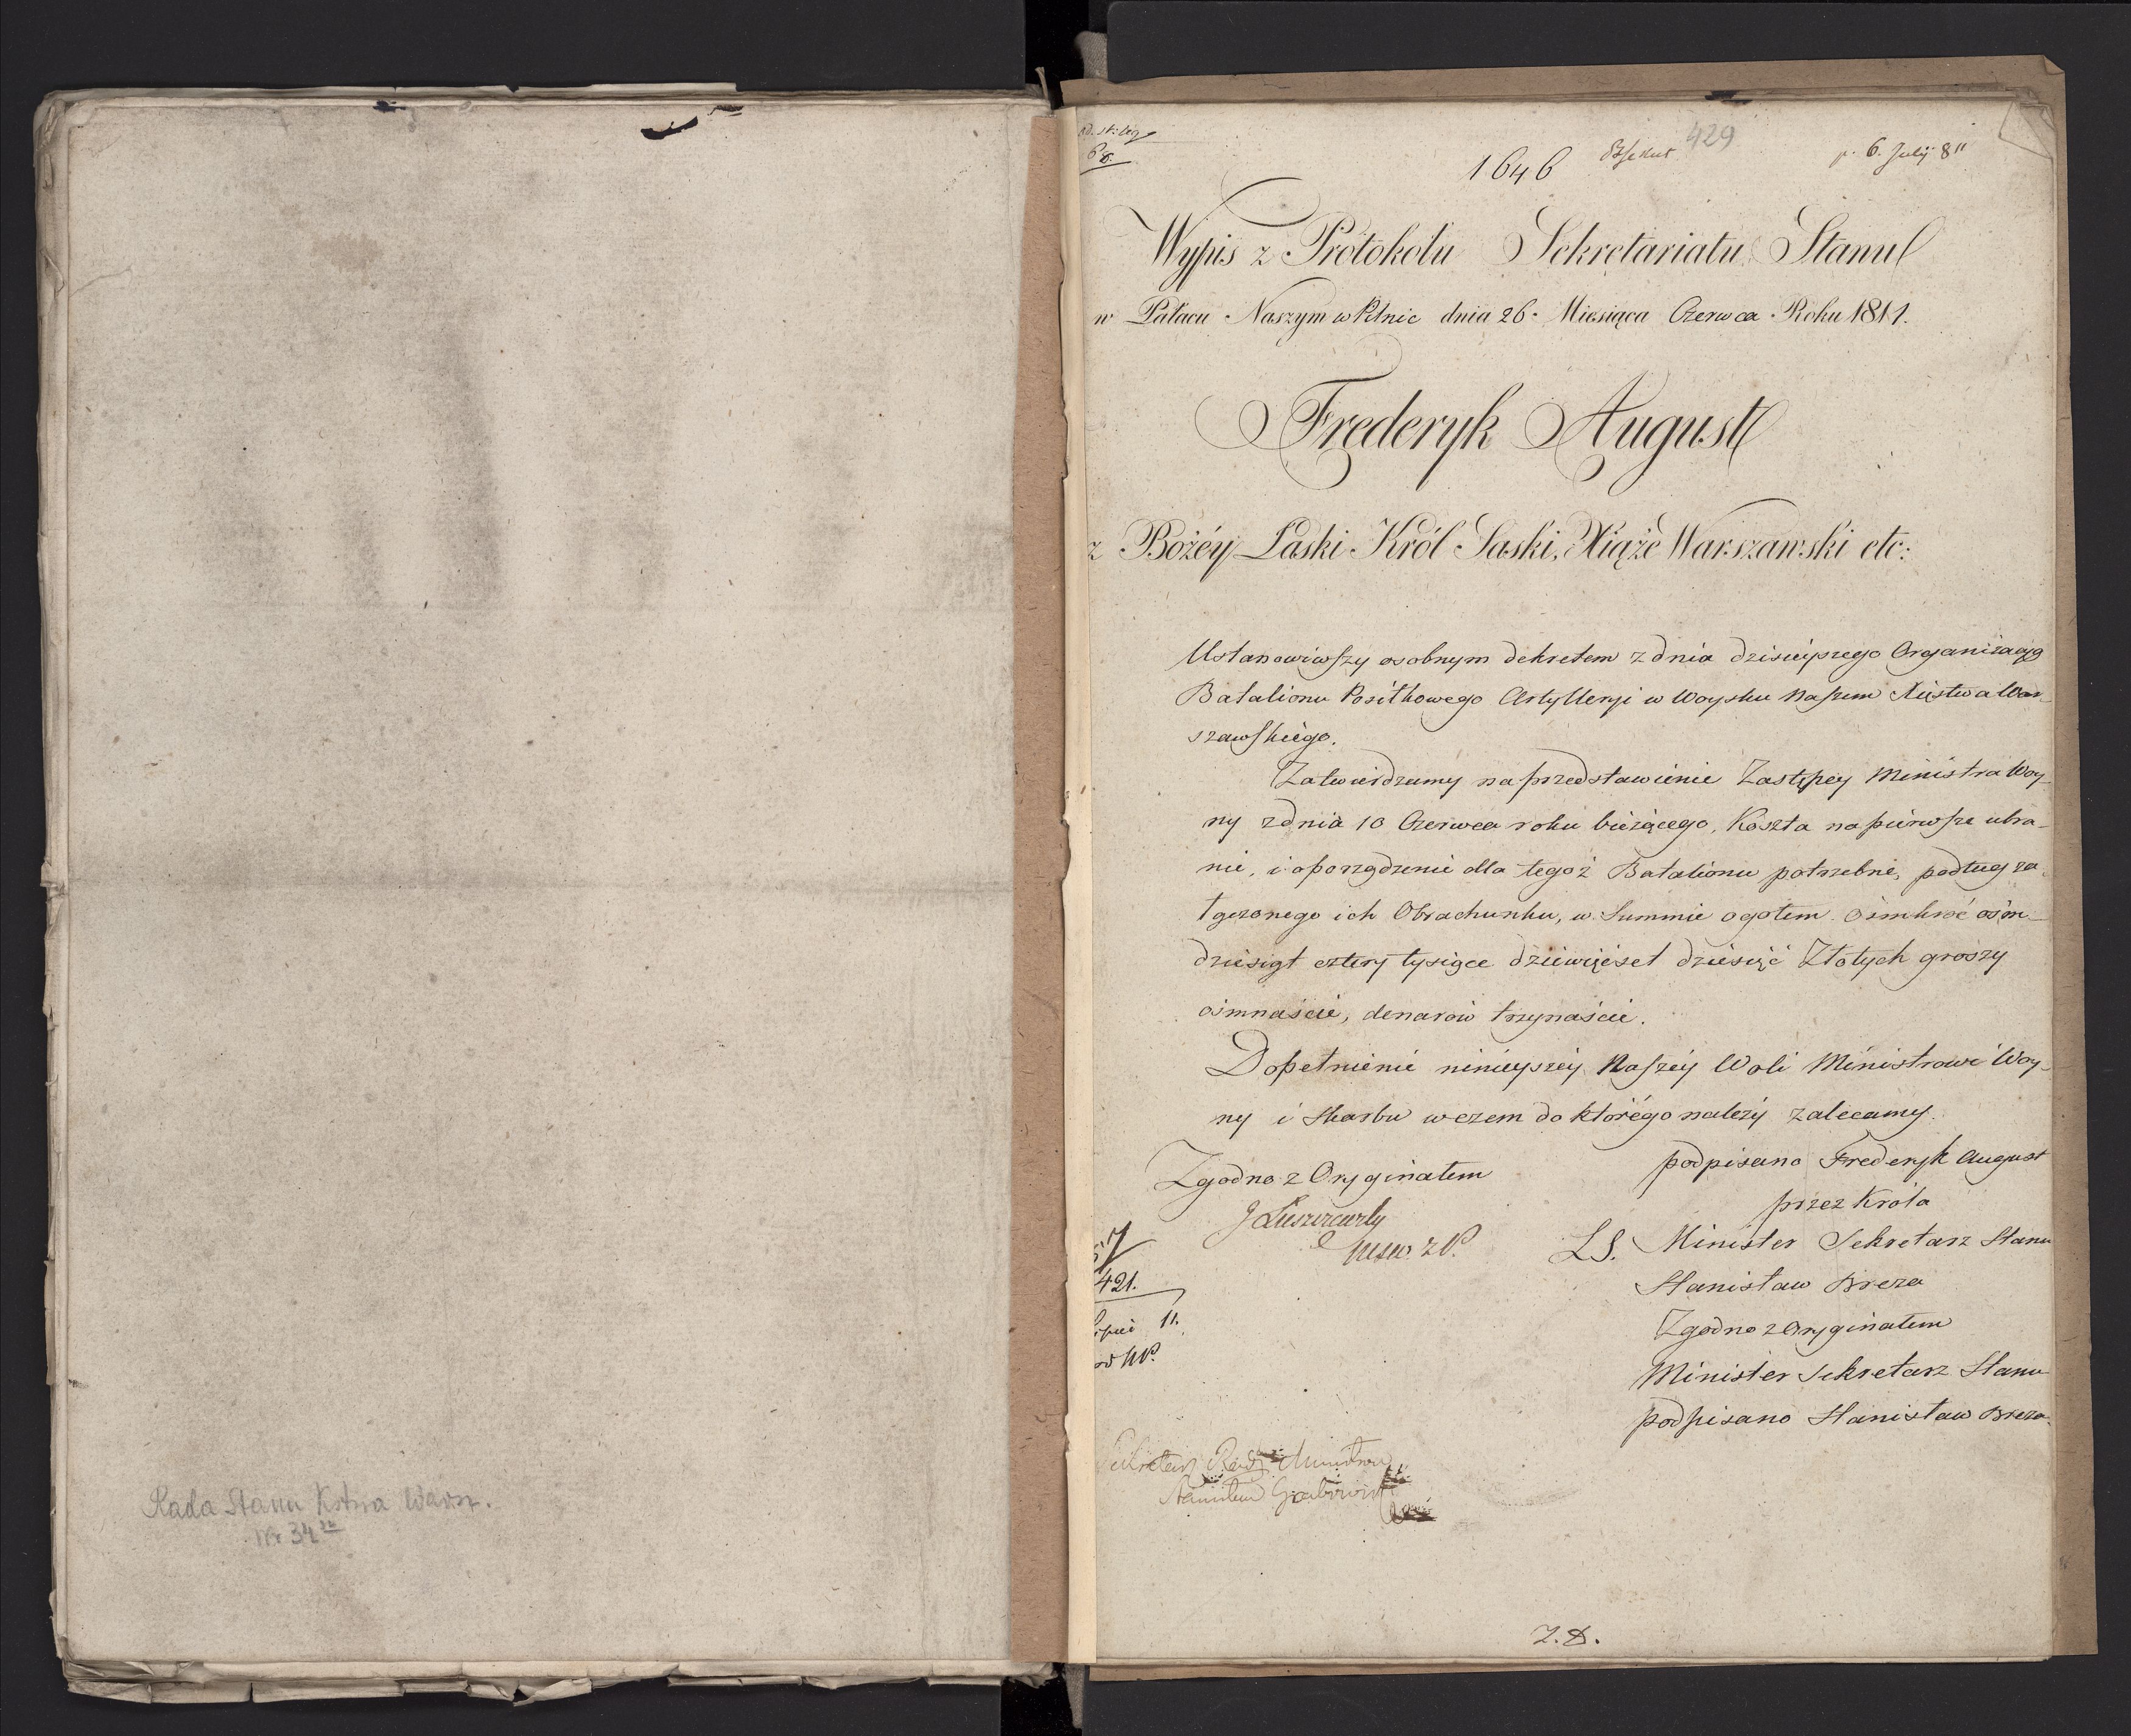 Rada Stanu Kstwa Warsz.
Nr 34
429
1646
6. July 811
Wypis z Protokołu Sekretariatu Stanu
w Pałacu Naszym w Pilnic dnia 26. Miesiąca Czerwca Roku 1811.
Frederyk August
z Bożéy Łaski Król Saski, Xiąże Warszawski etc:
Ustanowiwszy osobnym dekretem z dnia dzisieyszego Organizacyą
Batalionu Posiłkowego Artylleryi w Woysku Naszem Xięstwa War-
szawskiego.
Zatwierdzamy na przedstawienie Zastępcy Ministra Woy-
ny z dnia 10 Czerwca roku bieżącego, Koszta na pierwsze ubra-
nie, i oporządzenie dla tegoż Batalionu potrzebne, podług za-
łączonego ich Obrachunku, w Summie ogółem ośmkroć ośm-
dziesiąt cztery tysiące dziewięćset dziesięć Złotych groszy
ośmnaście, denarów trzynaście.
Dopełnienie ninieyszéy Naszéy Woli Ministrowi Woy-
ny i Skarbu w czem do którégo należy zalecamy.
Zgodno z Oryginałem
podpisano Frederyk August
przez Króla
LS. Minister Sekretarz Stanu
Stanisław Breza
Zgodno z Oryginałem
Minister Sekretarz Stanu
podpisano Stanisław Breza.
421.
11.
Sekretarz Rady Ministrów
Stanisław Grabowski